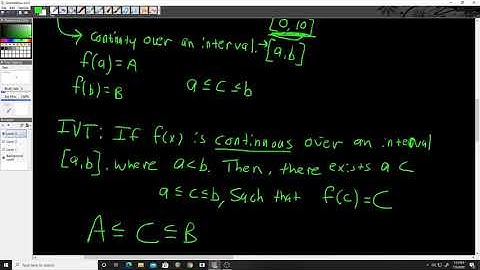 [0,10]
Continuity over an interval. → [a,b]
f(a) = A
f(b) = B
a ≤ c ≤ b
IVT: If f(x) is continuous over an interval
[a,b], where a<b. Then, there exists a c
a ≤ c ≤ b, Such that f(c) = C
A ≤ C ≤ B